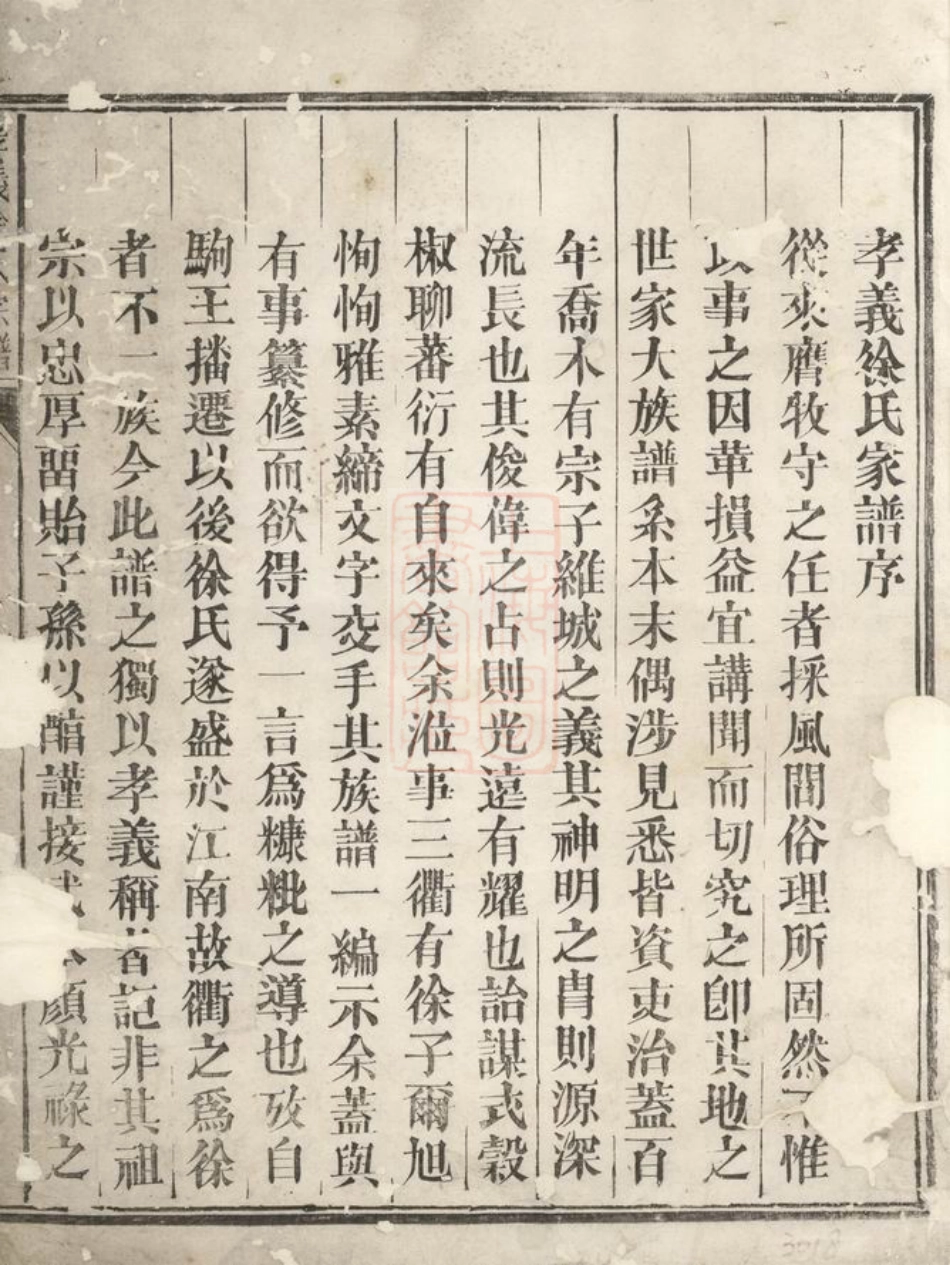 孝義徐氏家譜序
從來膺牧守之任者採風問俗理所固然不惟
以事之因革損益宜講聞而切究之卽其地之
世家大族譜系本末偶涉見悉皆資吏治蓋百
年喬木有宗子維城之義其神明之胄則源深
流長也其俊偉之占則光遠有耀也詒謀式穀
椒聊蕃衍有自來矣余涖事三衢有徐子爾旭
恂恂雅素締文字交手其族譜一編示余蓋與
有事纂修而欲得予一言爲糠粃之導也攷自
駒王播遷以後徐氏遂盛於江南故衢之爲徐
者不一族今此譜之獨以孝義稱者詎非其祖
宗以忠厚留貽子孫以醕謹接 顏光祿之